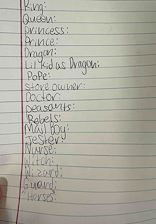 King:
Queen:
princess:
Prince:
Dragon:
Lil kid as Dragon:
Pope:
Store owner:
Doctor:
peasants:
Rebels:
Mail Boy:
Jester:
Nurse:
Witch:
Wizard:
Guard:
Horses: